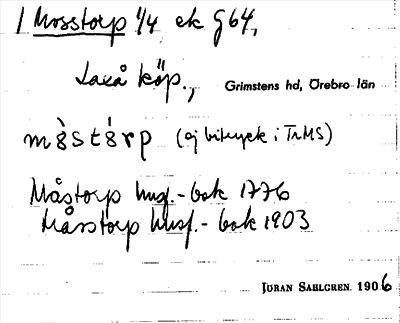 1 Mosstorp 1/4 ek g64,
Laxå köp., Grimstens hd, Örebro län
(ej bitryck i TrMS)
Måstorp husf.-bok 1776
Måsstorp husf.-bok 1903
JÖRAN SAHLGREN. 1906